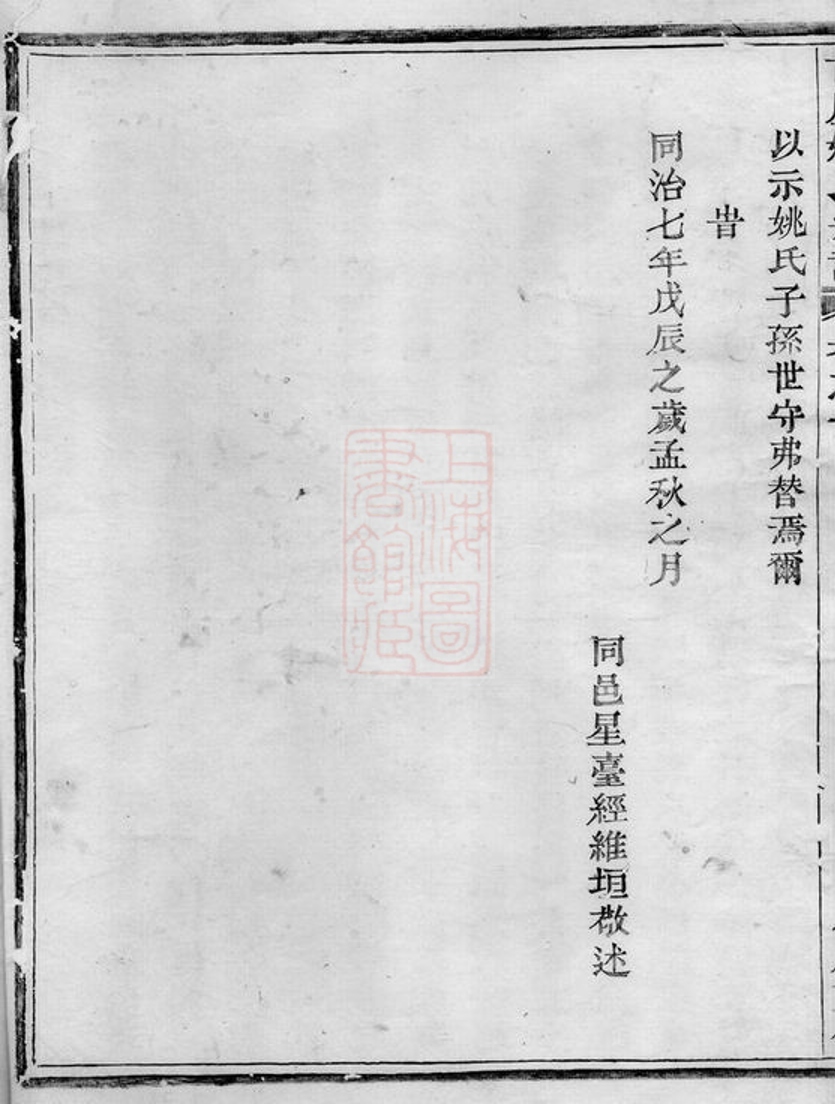 以示姚氏子孫世守弗替焉爾
旹
同治七年戊辰之歲孟秋之月
同邑星臺經維垣敬述
上海圖
書館藏